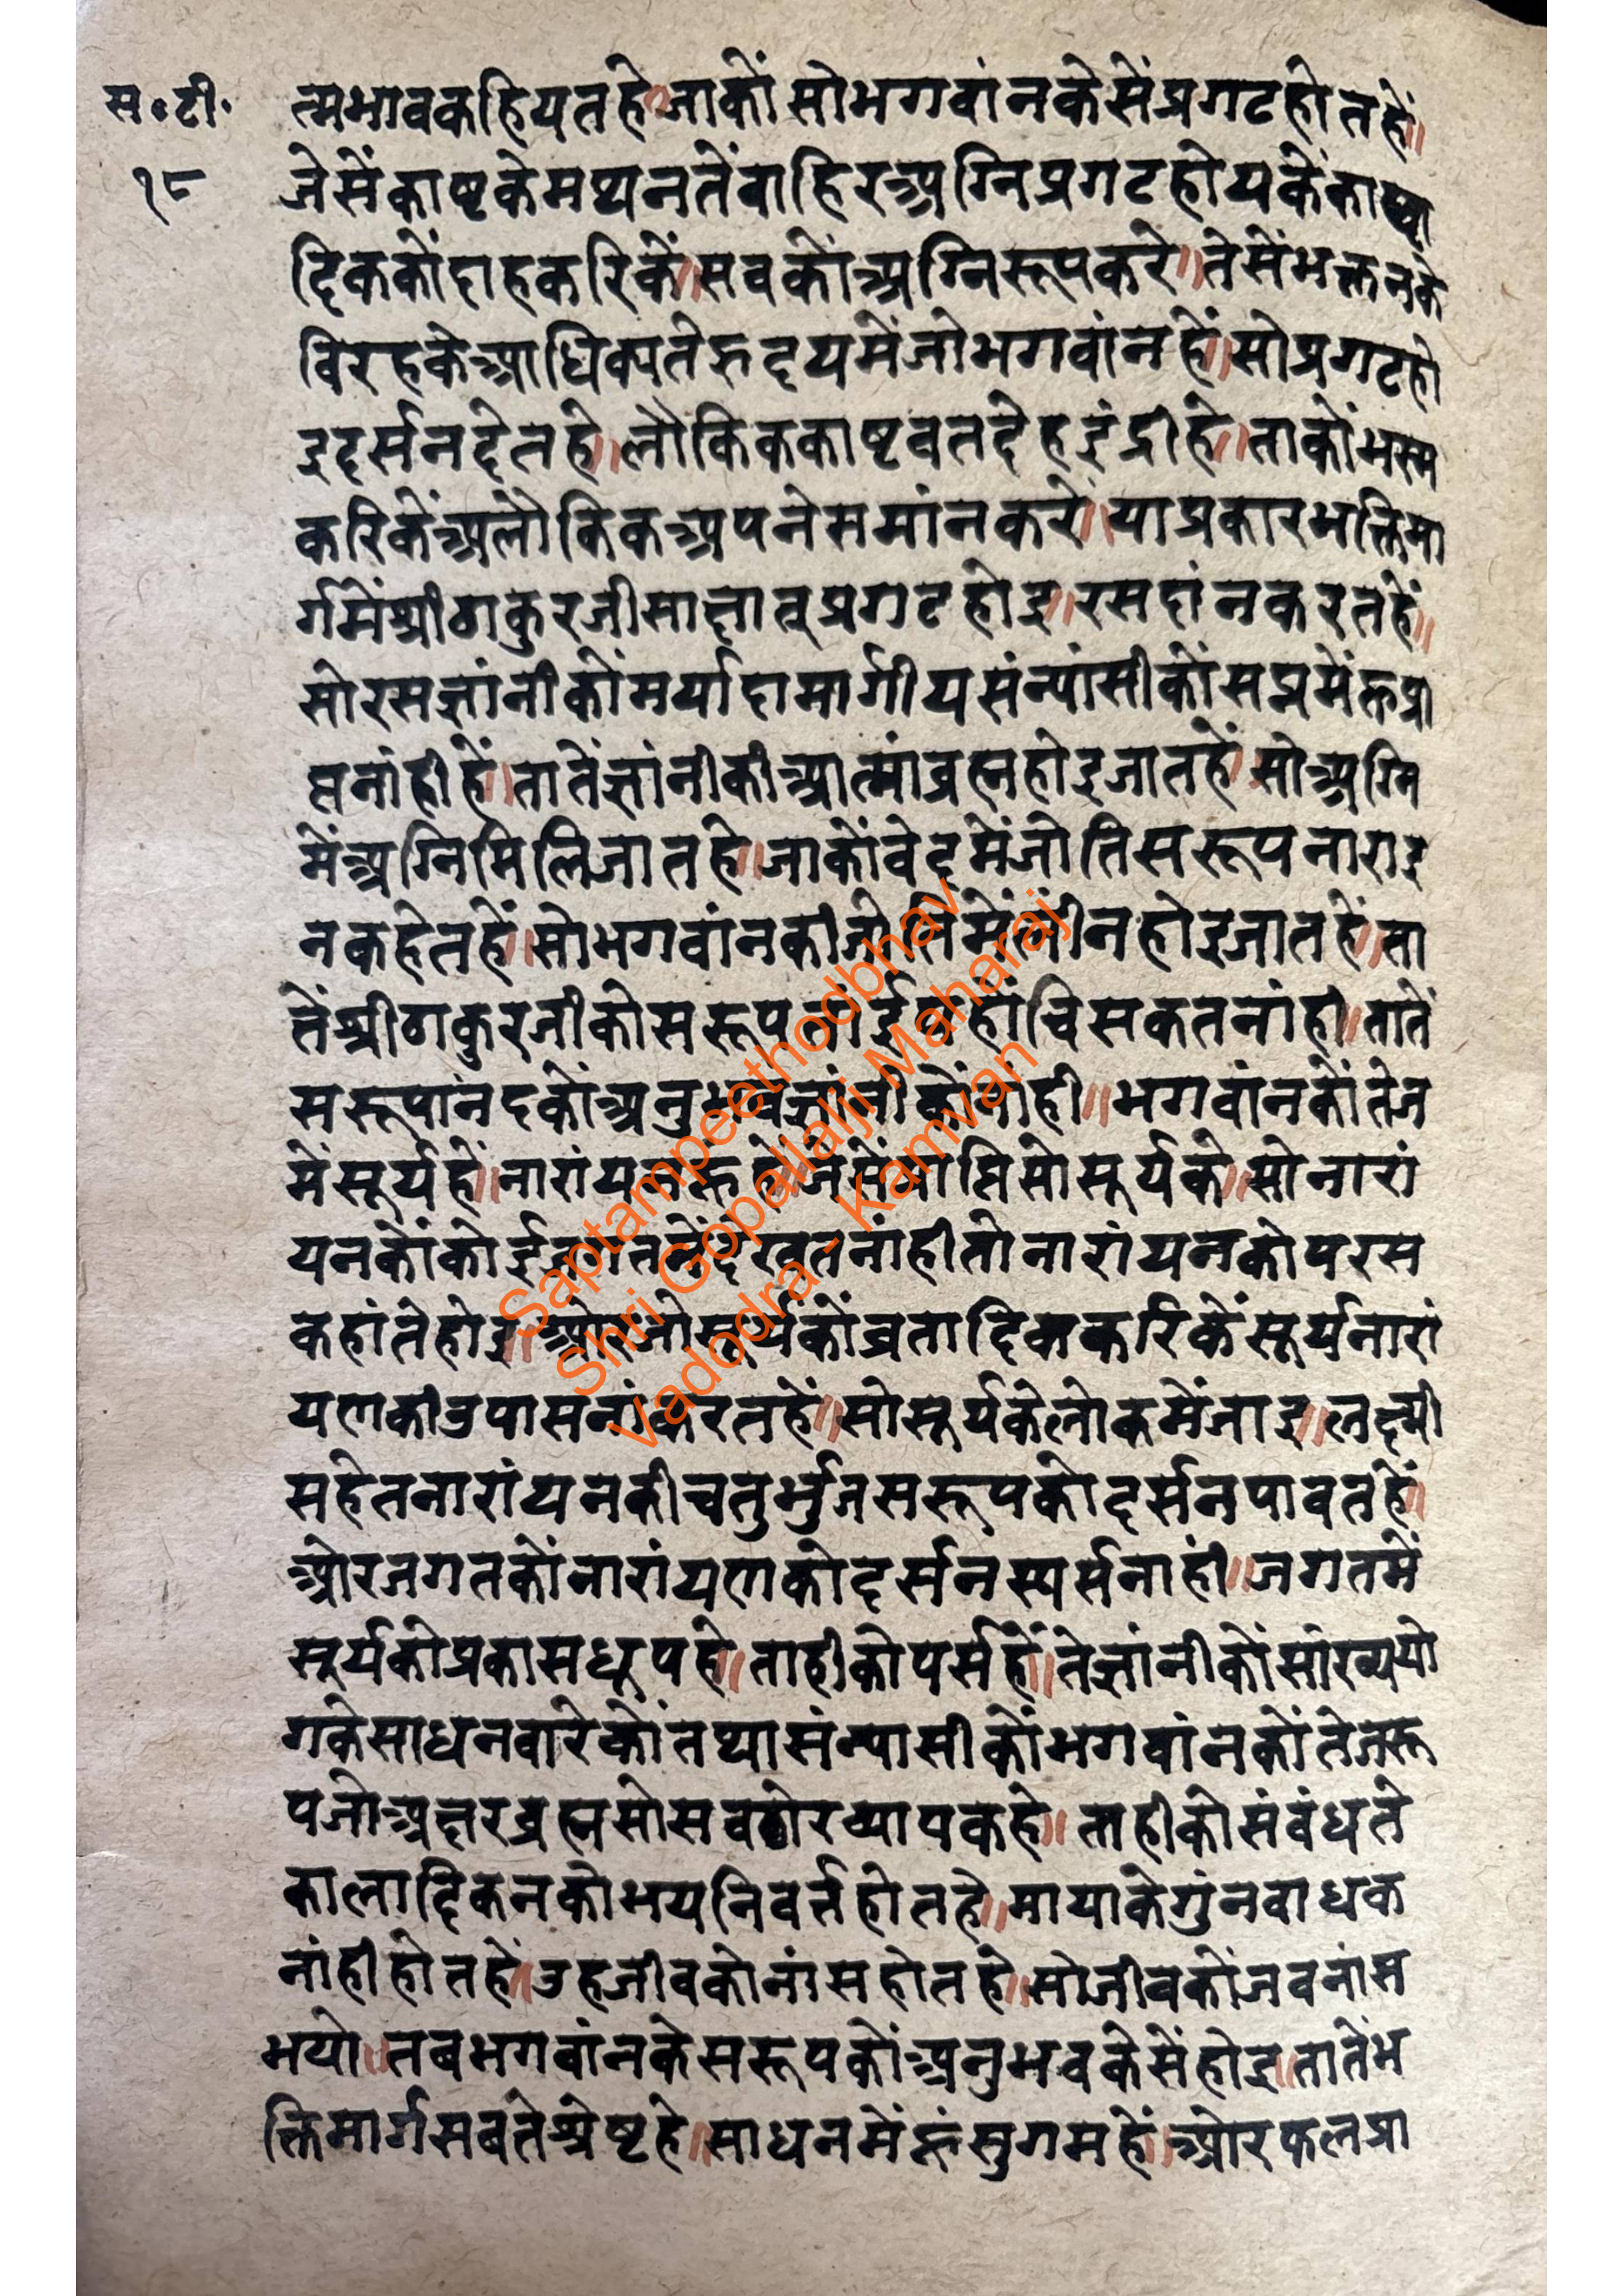 स॰टी॰
१८
त्मभावकहियतहे॥जाकोंसोभगवांनकेसेंप्रगटहोतहें॥
जेसेंकाष्टकेमथ्यनतेंवाहिरअग्निप्रगटहोयकेंकाष्टा
दिककोंदाहकरिकें॥सवकोंअग्निरूपकरे॥तेसेंभक्तनके
विरहकेआधिक्यतेरुदयमेंजोभगवांनहें॥सोप्रगटहो
इदर्सनदेतहे॥लौकिककाष्टवतदेहइंद्रीहे॥ताकोंभस्म
करिकेंअलौकिकअपनेसमांनकरें॥याप्रकारभक्तिमा
र्गमेंश्रीठाकुरजीसाक्षातूप्रगटहोइ॥रसदांनकरतहें॥
सोरसज्ञांनीकोंमर्यादामार्गीयसंन्यांसीकोंसप्नमेंरूप्रा
प्तनांहीहें॥तातेंज्ञांनीकीआत्मांब्रह्महोइजातहें॥सोअग्नि
मेंअग्निमिलिजातहे॥जाकोंवेदमेंजोतिसरूपनाराइ
नकहेतहें॥सोभगवांनकीजोतिमेंलींनहोइजातहें॥ता
तेंश्रीठाकुरजीकोसरूपतांईपोहोंचिसकतनांही॥तातें
सरूपांनदकोंअनुभवज्ञांनीकोंनांही॥भगवांनकोंतेज
मेंसूर्यहें॥नारांयनरूहे॥जेसेंप्राप्तिसोसूर्यके॥सोनारां
यनकोंकोईजगतमेंदेखतनांहीतोनारांयनकोपरस
कहांतेहोइ॥ओरजोसूर्यकोंव्रतादिककरिकेंसूर्यनारां
यणकीउपासनांकरतहें॥सोसूर्यकेलोकमेंजाइ॥लक्ष्मी
सहेतनारांयनकीचतुर्भुजसरूपकोदर्सनपावतहें॥
ओरजगतकोंनारांयणकोदर्सनस्पर्सनाहीं॥जगतमें
सूर्यकोप्रकासधूपहे॥ताहीकोपर्सहें॥तेज्ञांनीकोंसांख्ययो
गकेसाधनवारेकोंतथासंन्यासीकोंभगवांनकोंतेजरू
पजोअक्षरब्रह्मसोसवठोरव्यापकहे॥ताहीकोसंबंधते
कालादिकनकोभयनिवर्त्तहोतहे॥मायाकेगुंनवाधक
नांहीहोतहें॥उहजीवकोनांसहोतहे॥सोजीवकोंजवनांस
भयो॥तबभगवांनकेसरूपकोंअनुभवकेसेंहोइ॥तातेंभ
क्तिमार्गसबतेश्रेष्टहे॥साधनमेंरूंसुगमहें॥ओरफलप्रा